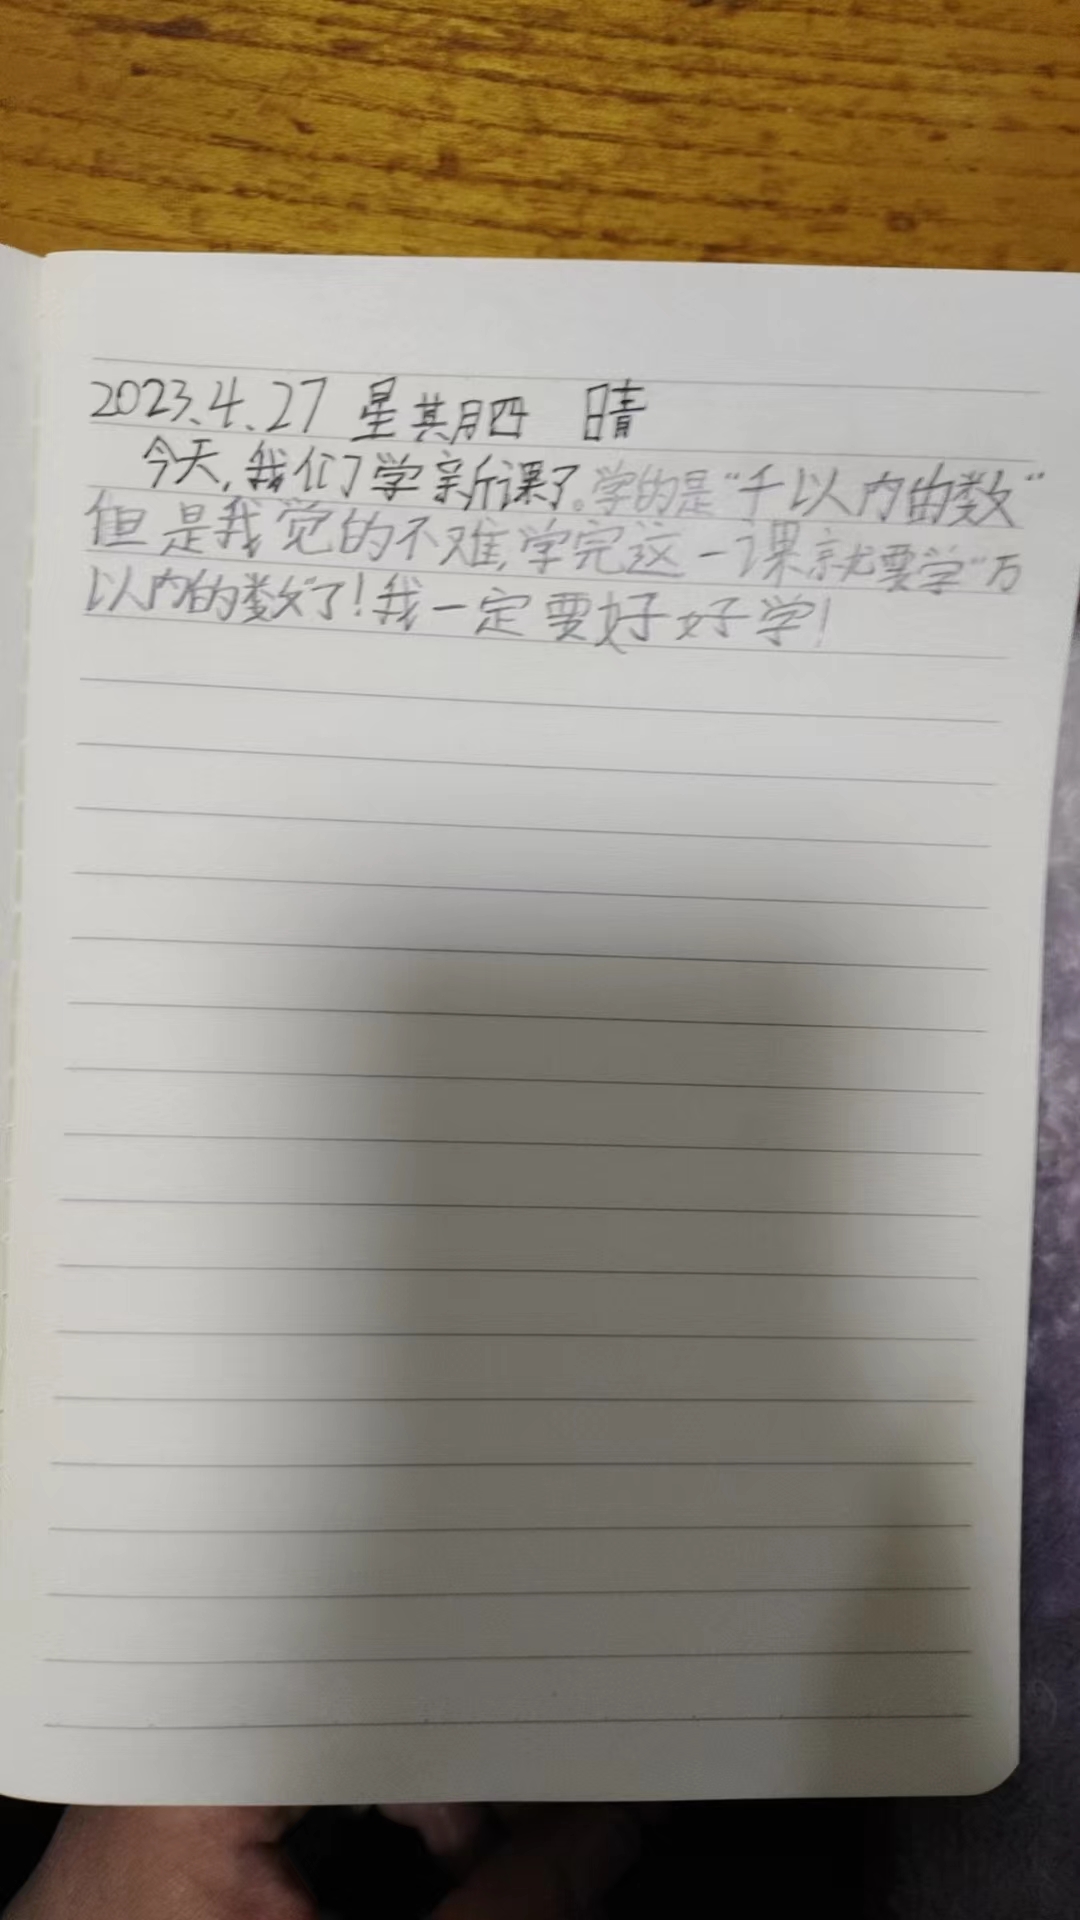 2023.4.27 星其月四 晴
今天,我们学新课了。学的是“千以内的数”
但是我觉的不难,学完这一课就要学“万
以内的数”了!我一定要好好学!